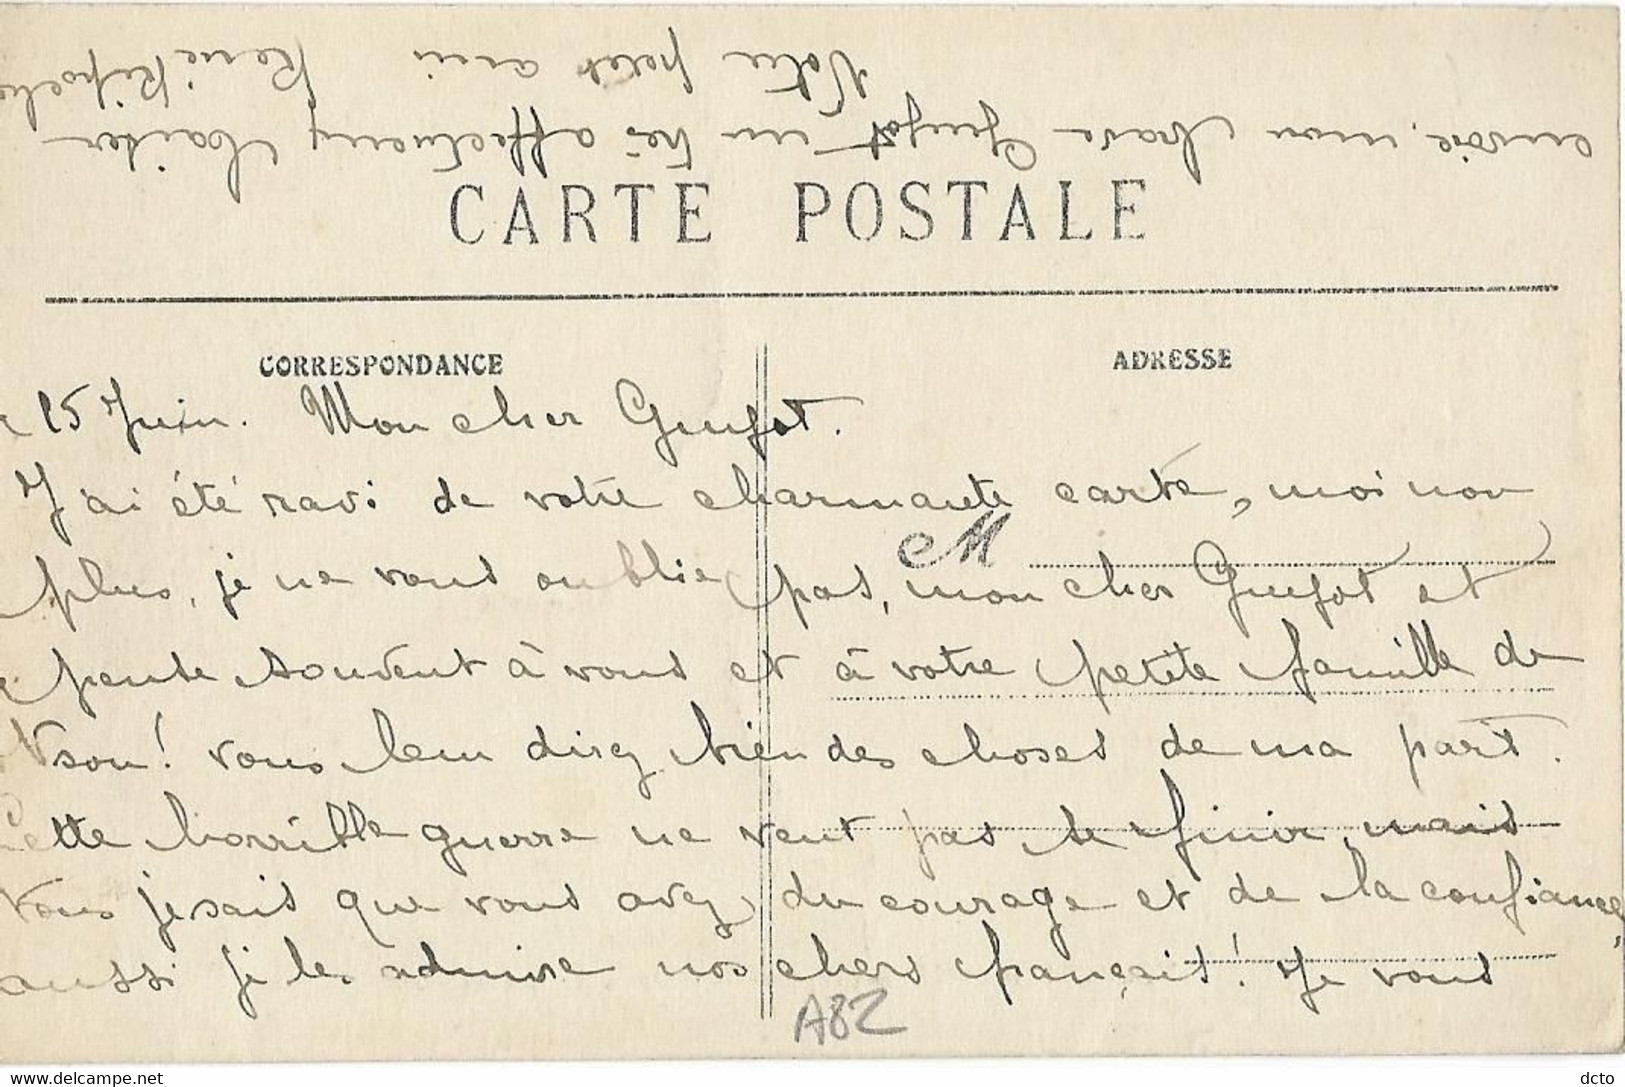 CARTE POSTALE
CORRESPONDANCE
ADRESSE
15 Juin. Mon cher Gunfot.
J'ai été ravi de votre charmante carte, moi non
M
plus, je ne vous oublie pas, mon cher Gunfot et
pense souvent à vous et à votre petite famille de
Nson! vous leur direz bien des choses de ma part.
Cette horrible guerre ne veut pas se finir, mais
vous je sais que vous avez du courage et de la confiance,
aussi je les admire nos chers français! Je vous
envoie, mon brave Gunfot un très affectueux baiser
Votre petit ami René
A82
delcampe.net
dcto